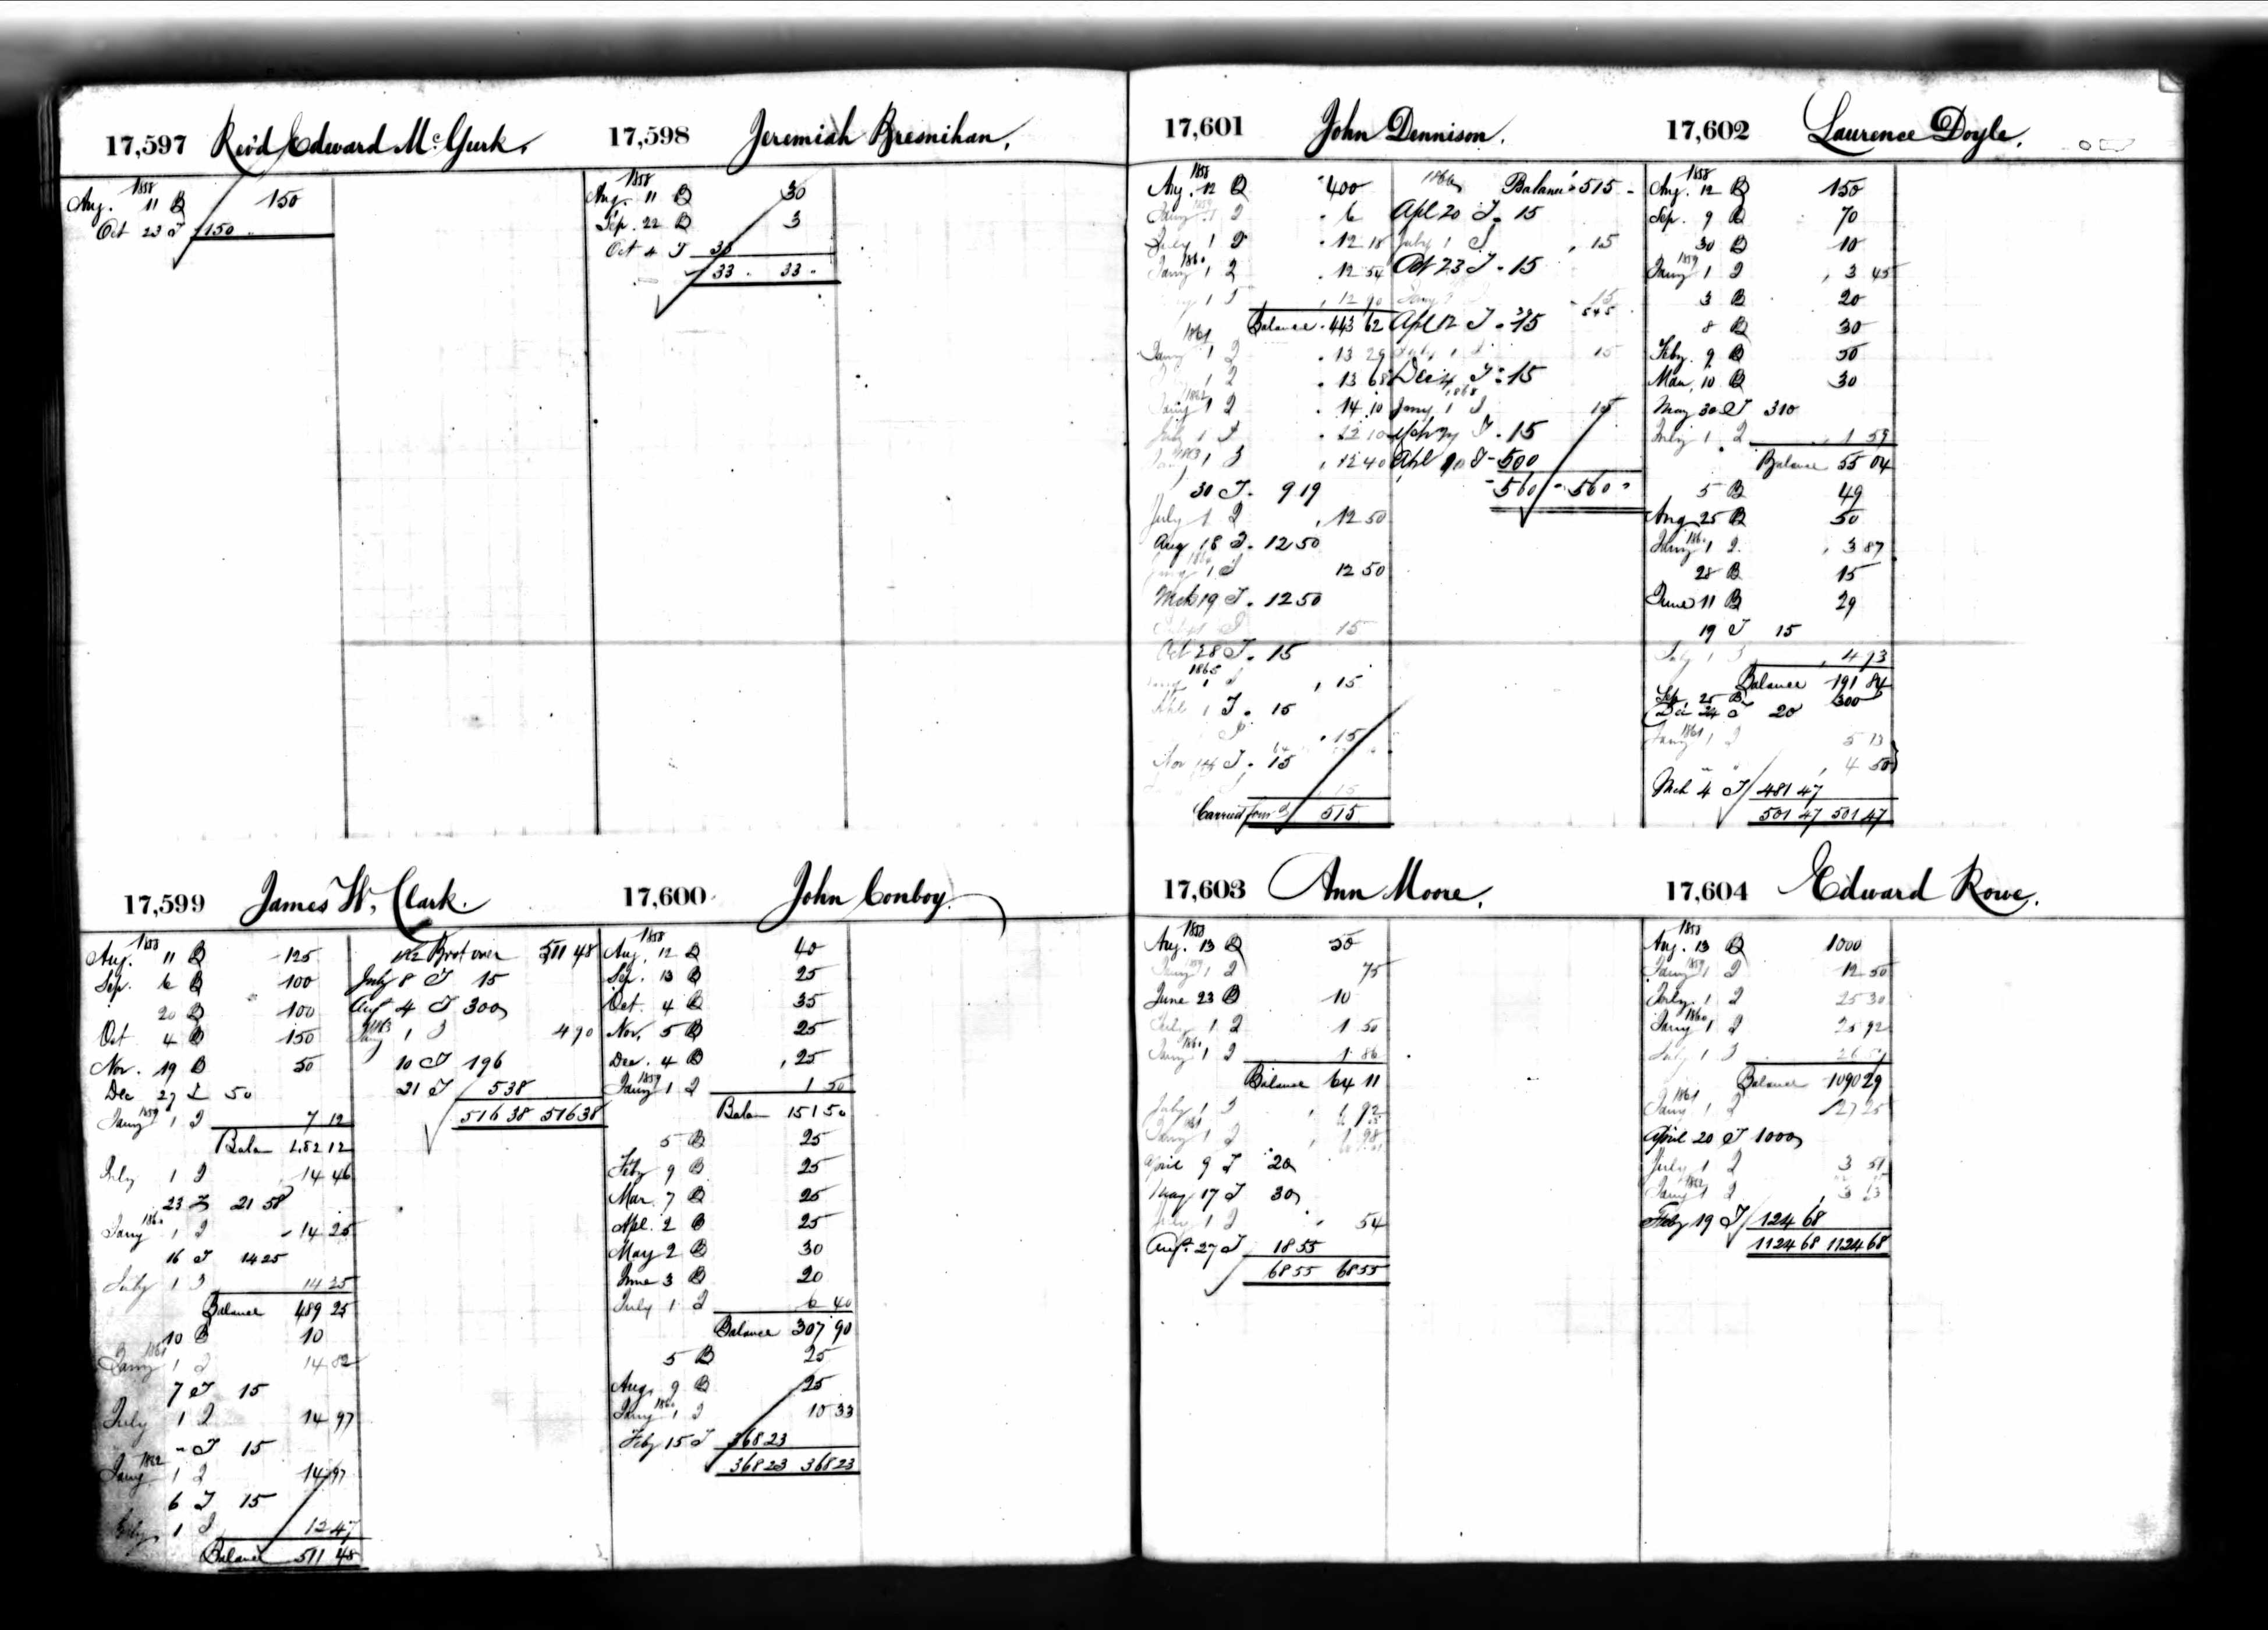 17,597 Rev'd Edward McGurk.
1858
Aug. 11 B 150
Oct 23 T 150
17,598 Jeremiah Bresnihan.
1858
Aug. 11 B 30
Sep. 22 B 3
Oct 4 T 33
33 33
17,599 James W. Clark.
1858
Aug. 11 B 125
Sep. 6 B 100
20 B 100
Oct 4 B 150
Nov. 19 B 50
Dec 27 T 50
Jany 1859 1 I 7 12
Balan 482 12
July 1 I 14 46
23 T 21 58
Jany 1860 1 I 14 25
16 T 14 25
July 1 I 14 25
Balance 489 25
10 B 10
Jany 1861 1 I 14 82
7 T 15
July 1 I 14 97
" T 15
Jany 1862 1 I 14 97
6 T 15
July 1 I 12 47
Balance 511 48
1862 Brot over 511 48
July 8 T 15
Augt 4 T 300
Jany 1863 1 I 4 90
10 T 196
21 T 5 38
516 38 516 38
17,600 John Conboy.
1858
Aug. 12 B 40
Sep. 13 B 25
Oct. 4 B 35
Nov. 5 B 25
Dec. 4 B 25
Jany 1859 1 I 1 50
Balan 151 50
5 B 25
Feby 9 B 25
Mar. 7 B 25
Apl. 2 B 25
May 2 B 30
June 3 B 20
July 1 I 6 40
Balance 307 90
5 B 25
Aug. 9 B 25
Jany 1860 1 I 10 33
Feby 15 T 368 23
368 23 368 23
17,601 John Dennison.
1858
Aug. 12 B 400
Jany 1859 1 I 6
July 1 I 12 18
Jany 1860 1 I 12 54
1 I 12 90
Balance 443 62
1861
Jany 1 I 13 29
1 I 13 68
1862
Jany 1 I 14 10
July 1 I 12 10
1863 1 I 12 40
30 T 9 19
July 1 I 12 50
Aug 18 T 12 50
1864
Jany 1 I 12 50
Mch 19 T 12 50
July 1 I 15
Oct 28 T 15
1865
1 I 15
Apl 1 T 15
I 15
Nov 14 T 15
15
Carried forwd 515
1866 Balance 515
Apl 20 T 15
July 1 I 15
Oct 23 T 15
Jany 15
545
Apl 12 T 15
July 1 I 15
Dec 4 T 15
1868
Jany 1 I 15
T 15
Apl T 500
560 560
17,602 Laurence Doyle.
1858
Aug. 12 B 150
Sep. 9 B 70
30 B 10
Jany 1859 1 I 3 45
3 B 20
8 B 30
Feby. 9 B 50
Mar. 10 B 30
May 30 T 310
July 1 I 1 59
Balance 55 04
5 B 49
Aug 25 B 50
Jany 1860 1 I 3 87
28 B 15
June 11 B 29
19 T 15
July 1 I 4 93
Balance 191 84
Sep. 25 B 300
Dec 24 T 20
Jany 1861 1 I 5 13
" " 4 50
Mch 4 T 481 47
501 47 501 47
17,603 Ann Moore.
1858
Aug. 13 B 50
Jany 1859 1 I 75
June 23 B 10
July 1 I 1 50
Jany 1860 1 I 1 86
Balance 64 11
July 1 I 1 92
Jany 1861 1 I 1 98
April 9 T 20
May 17 T 30
July 1 I 54
Augt. 27 T 18 55
68 55 68 55
17,604 Edward Rowe.
1858
Aug. 13 B 1000
Jany 1859 1 I 12 50
July 1 I 25 30
Jany 1860 1 I 25 92
July 1 I 26 57
Balance 1090 29
1861
Jany 1 I 27 25
April 20 T 1000
July 1 I 3 51
Jany 1862 1 I 3 63
Feby 19 T 124 68
1124 68 1124 68